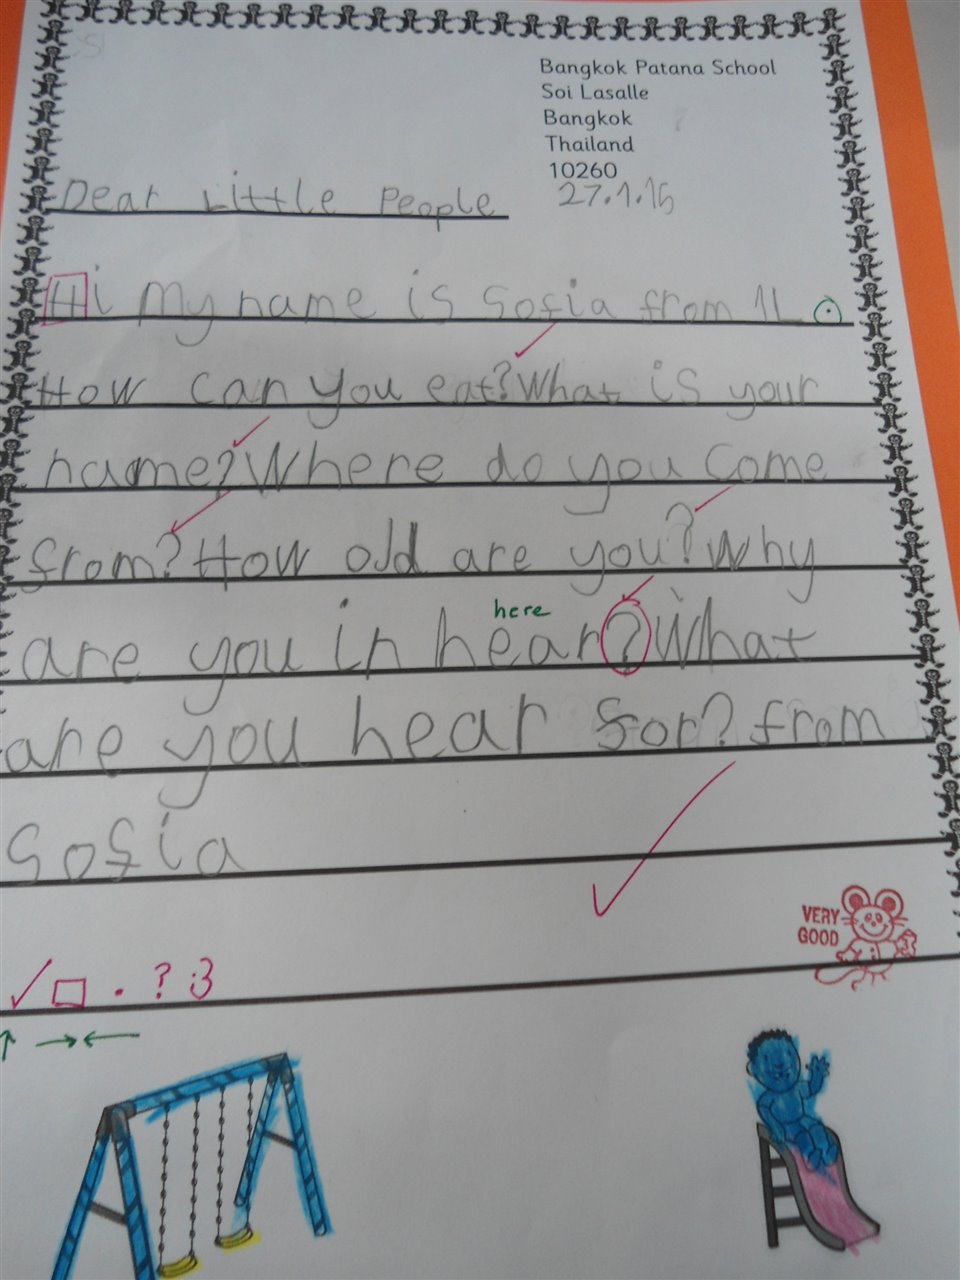 Bangkok Patana School
Soi Lasalle
Bangkok
Thailand
10260
27.1.16
Dear Little People
Hi my name is sofia from 1L.
How can you eat? What is your
name? Where do you come
from? How old are you? Why
here
are you in hear? What
are you hear for? from
sofia
VERY
GOOD
✓ □ . ? :3
↑ → ←